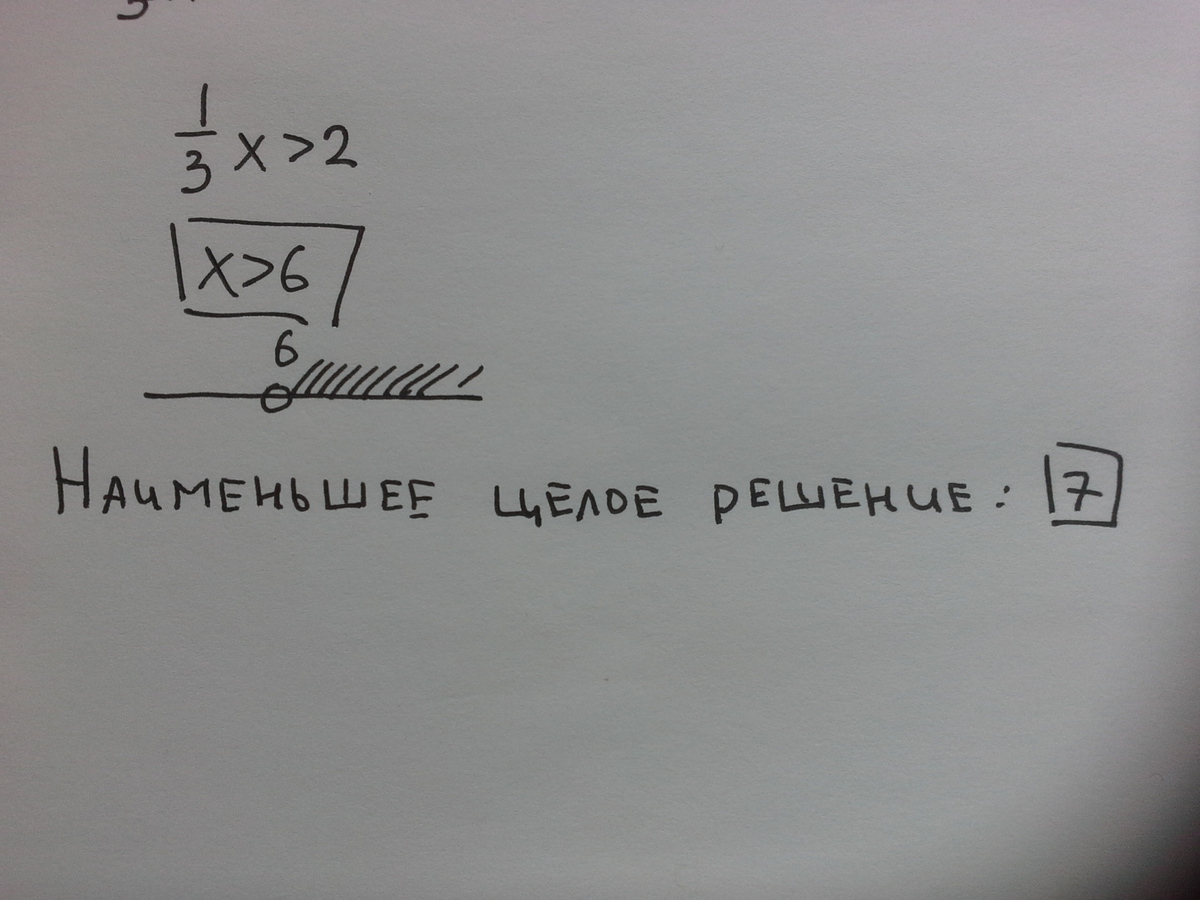 1/3 x > 2
x > 6
6
Наименьшее целое решение: 7